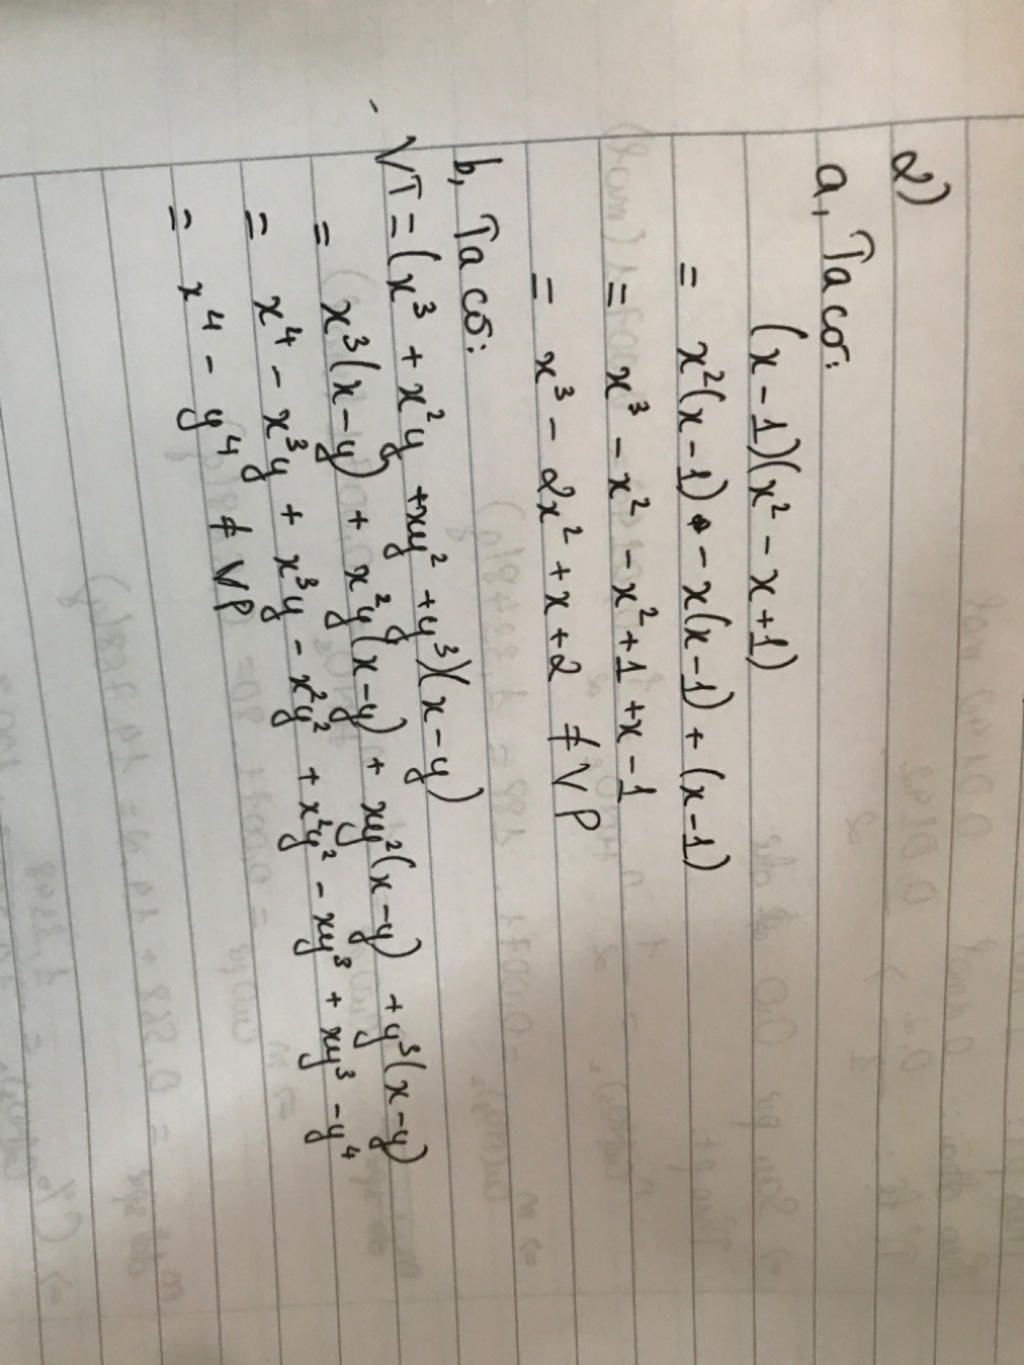 2)
a, Ta có:
(x - 1)(x² - x + 1)
= x²(x - 1) - x(x - 1) + (x - 1)
= x³ - x² - x² + 1 + x - 1
= x³ - 2x² + x + 2 ≠ VP
b, Ta có:
VT = (x³ + x²y + xy² + y³)(x - y)
= x³(x - y) + x²y(x - y) + xy²(x - y) + y³(x - y)
= x⁴ - x³y + x³y - x²y² + x²y² - xy³ + xy³ - y⁴
= x⁴ - y⁴ ≠ VP